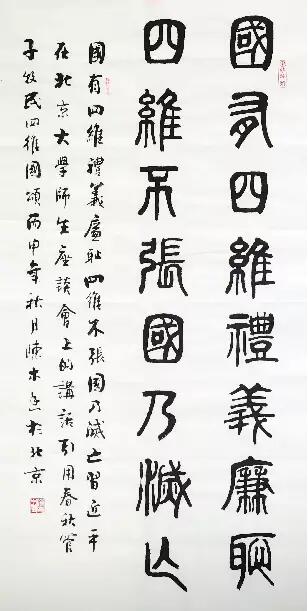 國有四維禮義廉恥
四維不張國乃滅亡
國有四維禮義廉恥四維不張國乃滅亡習近平
在北京大學師生座談會上的講話引用春秋管
子牧民四維國頌丙申年秋月陳木於北京